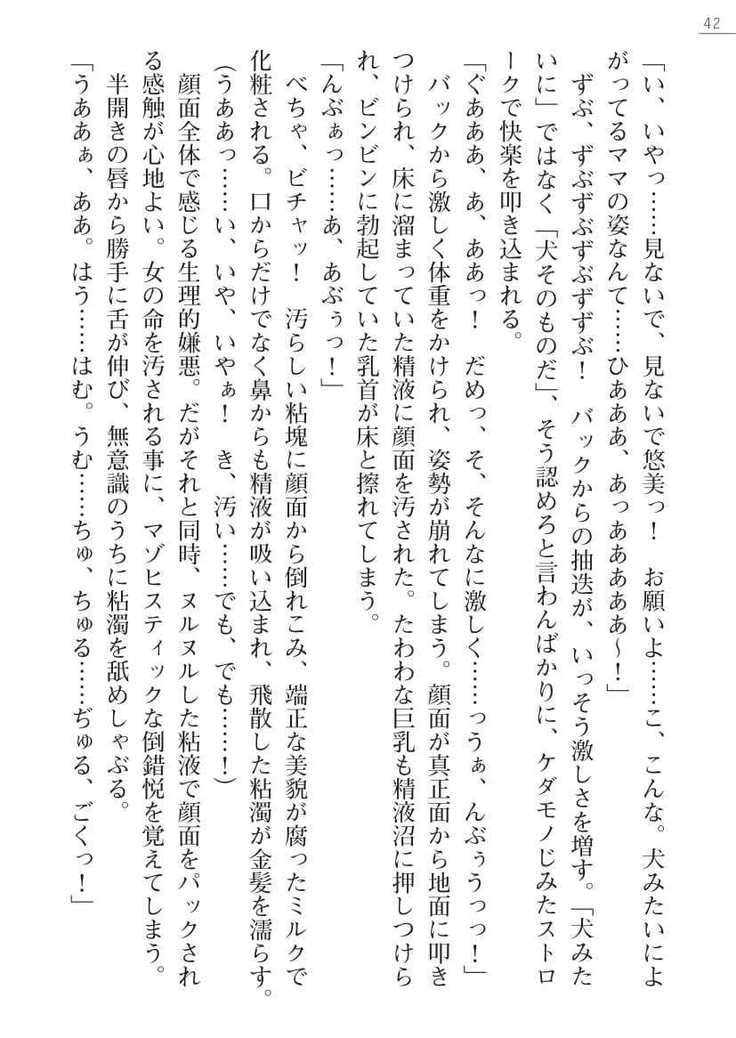 42
「い、いやっ……見ないで、見ないで悠美っ！　お願いよ……こ、こんな。犬みたいによ
がってるママの姿なんて……ひぁああ、あっあぁあぁあ～！」
　ずぶ、ずぶずぶずぶずずぶ！　バックからの抽迭が、いっそう激しさを増す。「犬みた
いに」ではなく「犬そのものだ」、そう認めろと言わんばかりに、ケダモノじみたストロ
ークで快楽を叩き込まれる。
「ぐあああ、あ、ああっ！　だめっ、そ、そんなに激しく……っうぁ、んぶぅうっっ！」
　バックから激しく体重をかけられ、姿勢が崩れてしまう。顔面が真正面から地面に叩き
つけられ、床に溜まっていた精液に顔面を汚された。たわわな巨乳も精液沼に押しつけら
れ、ビンビンに勃起していた乳首が床と擦れてしまう。
「んぶぁっ……あ、あぶぅっ！」
　べちゃ、ビチャッ！　汚らしい粘塊に顔面から倒れこみ、端正な美貌が腐ったミルクで
化粧される。口からだけでなく鼻からも精液が吸い込まれ、飛散した粘濁が金髪を濡らす。
（うああっ……い、いや、いやぁ！　き、汚い……でも、でも……！）
　顔面全体で感じる生理的嫌悪。だがそれと同時、ヌルヌルした粘液で顔面をパックされ
る感触が心地よい。女の命を汚される事に、マゾヒスティックな倒錯悦を覚えてしまう。
　半開きの唇から勝手に舌が伸び、無意識のうちに粘濁を舐めしゃぶる。
「うああぁ、ああ。はう……はむ。うむ……ちゅ、ちゅる……ぢゅる、ごくっ！」